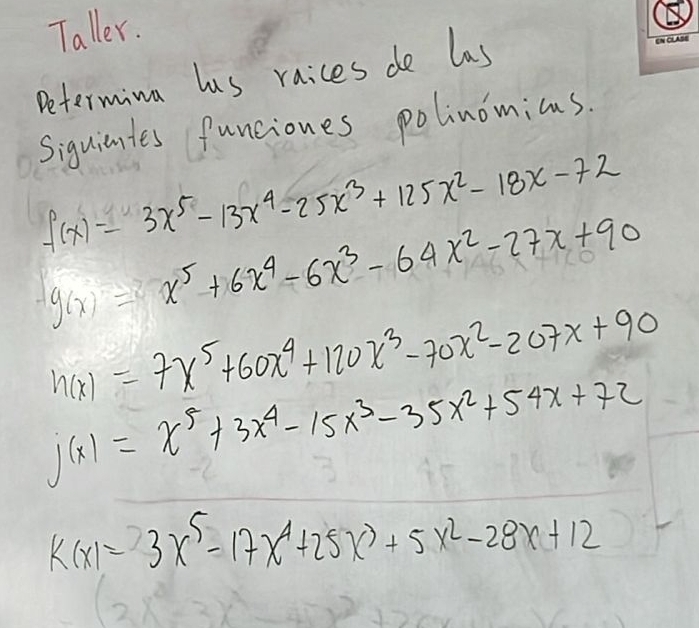 Taller.
EN CLASE
Determina las raices de las
Siguientes funciones polinómicas.
f(x) = 3x⁵ - 13x⁴ - 25x³ + 125x² - 18x - 72
g(x) = x⁵ + 6x⁴ - 6x³ - 64x² - 27x + 90
h(x) = 7x⁵ + 60x⁴ + 120x³ - 70x² - 207x + 90
j(x) = x⁵ + 3x⁴ - 15x³ - 35x² + 54x + 72
K(x) = 3x⁵ - 17x⁴ + 25x³ + 5x² - 28x + 12